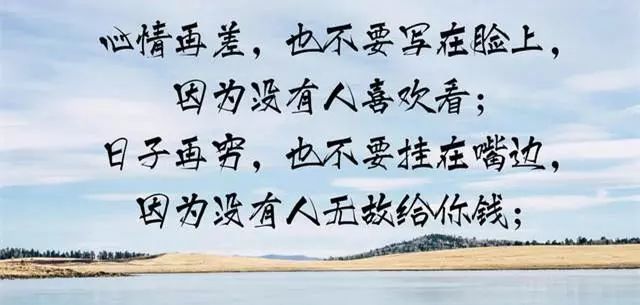 心情再差，也不要写在脸上，
因为没有人喜欢看；
日子再穷，也不要挂在嘴边，
因为没有人无故给你钱；